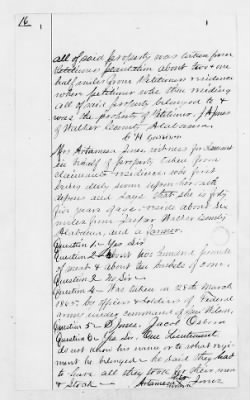 16
all of said property was taken from
Petitioners plantation about two & one
half miles from Petitioners residence
where petitioner was then residing
all of said property belonged to &
was the property of Petitioner, J Jones
of Walker County Alabama
Mrs Artamesa Jones witness for Claimant
in behalf of property taken from
claimants residence who first
being duly sworn upon her oath
deposes and says that she is fifty
five years of age, resides about six
miles from Jasper Walker County
Alabama, and a farmer.
Question 1 - Yes Sir
Question 2 - About two hundred pounds
of meat & about ten bushels of corn.
Question 3 No Sir
Question 4 - Was taken in 28th March
1865 by officers & Soldiers of Federal
army under command of Gen Wilson,
Question 5 - Jones, Jacob
Question 6 - Yes Sir, One Lieutenant,
do not know his name or to what regi
ment he belonged he said they had
to have all they took for their men
& Stock -
Jones